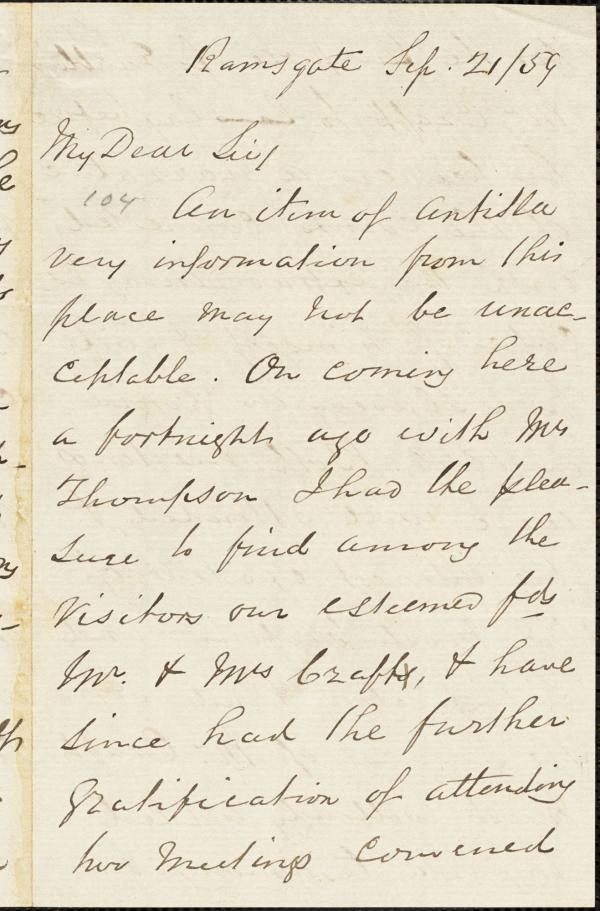 Ramsgate Sep. 21/59
My Dear Sir/
104 An item of antisla
very information from this
place may not be unac-
ceptable. On coming here
a fortnight ago with Mrs
Thompson I had the plea-
sure to find among the
Visitors our esteemed fds
Mr. & Mrs Craft, & have
since had the further
gratification of attending
two Meetings convened